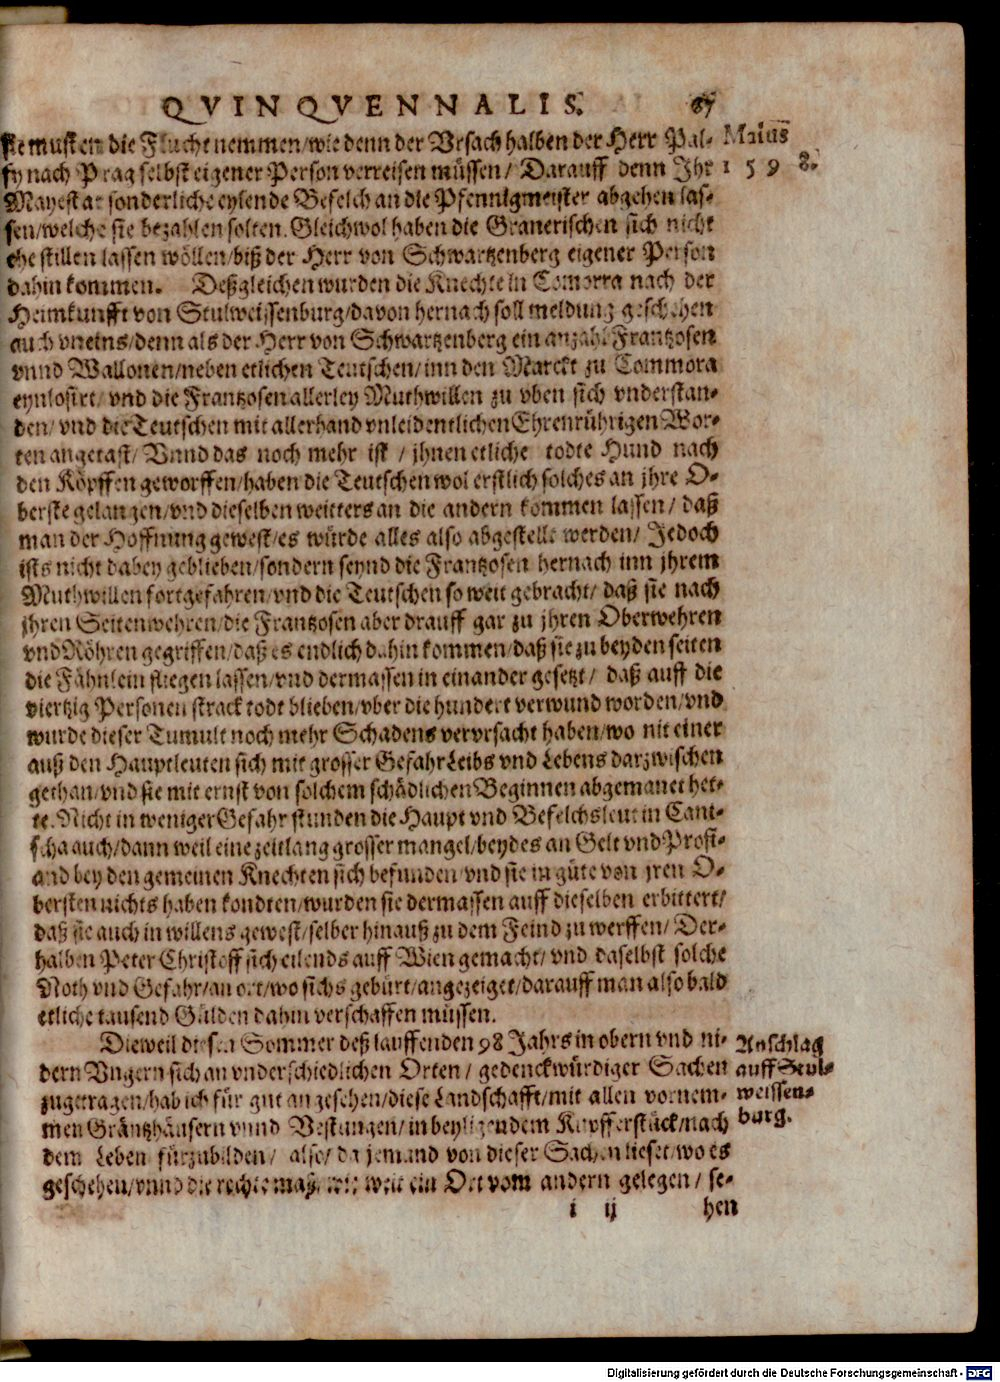 QVINQVENNALIS. 67
sie musten die Flucht nemmen/wie denn der Vrsach halben der Herr Pal- Maius
fy nach Prag selbst eigener Person verreisen müssen/ Darauff denn Ihr 1 5 9 8.
Mayestat sonderliche eylende Befelch an die Pfennigmeister abgehen las-
sen/welche sie bezahlen solten. Gleichwol haben die Granerischen sich nicht
ehe stillen lassen wöllen/biß der Herr von Schwartzenberg eigener Person
dahin kommen. Deßgleichen wurden die Knechte in Comorra nach der
Heimkunfft von Stulweissenburg/davon hernach soll meldung geschehen
auch vneins/denn als der Herr von Schwartzenberg ein anzahl Frantzosen
vnnd Wallonen/neben etlichen Teutschen/inn den Marckt zu Commora
eynlosirt/vnd die Frantzosen allerley Muthwillen zu vben sich vnderstan-
den/vnd die Teutschen mit allerhand vnleidentlichen Ehrenrührigen Wor-
ten angetast/Vnnd das noch mehr ist/jhnen etliche todte Hund nach
den Köpffen geworffen/haben die Teutschen wol erstlich solches an jhre O-
berste gelangen/vnd dieselben weitters an die andern kommen lassen/ daß
man der Hoffnung gewest/es würde alles also abgestelle werden/ Jedoch
ists nicht dabey geblieben/sondern seynd die Frantzosen hernach inn jhrem
Muthwillen fortgefahren/vnd die Teutschen so weit gebracht/ daß sie nach
jhren Seitenwehren/die Frantzosen aber drauff gar zu jhren Oberwehren
vnd Röhren gegriffen/daß es endlich dahin kommen/daß sie zu beyden seiten
die Fähnlein fliegen lassen/vnd dermassen in einander gesetzt/ daß auff die
viertzig Personen strack todt blieben/vber die hundert verwund worden/vnd
wurde dieser Tumult noch mehr Schadens vervrsacht haben/wo nit einer
auß den Hauptleuten sich mit grosser Gefahr Leibs vnd Lebens darzwischen
gethan/vnd sie mit ernst von solchem schädlichen Beginnen abgemanet het-
te. Nicht in weniger Gefahr stunden die Haupt vnd Befelchsleut in Cani-
scha auch/dann weil eine zeitlang grosser mangel/beydes an Gelt vnd Profi-
and bey den gemeinen Knechten sich befunden/vnd sie in güte von jren O-
bersten nichts haben kondten/wurden sie dermassen auff dieselben erbittert/
daß sie auch in willens gewest/selber hinauß zu dem Feind zu werffen/ Der-
halben Peter Christoff sich eilends auff Wien gemacht/ vnd daselbst solche
Noth vnd Gefahr/an ort/wo sichs gebürt/angezeiget/darauff man also bald
etliche tausend Gülden dahin verschaffen müssen.
Dieweil diesen Sommer deß lauffenden 98 Jahrs in obern vnd ni- Anschlag
dern Vngern sich an vnderschiedlichen Orten/ gedenckwürdiger Sachen auff Stul-
zugetragen/hab ich für gut angesehen/diese Landschafft/mit allen vornem- weissen-
men Gräntzhäusern vnnd Vestungen/in beyligendem Kupfferstück/nach burg.
dem Leben fürzubilden/ also/ da jemand von dieser Sachen lieset/wo es
geschehen/vnnd die rechte maß/ wie weit ein Ort vom andern gelegen/ se-
i ij hen
Digitalisierung gefördert durch die Deutsche Forschungsgemeinschaft - DFG